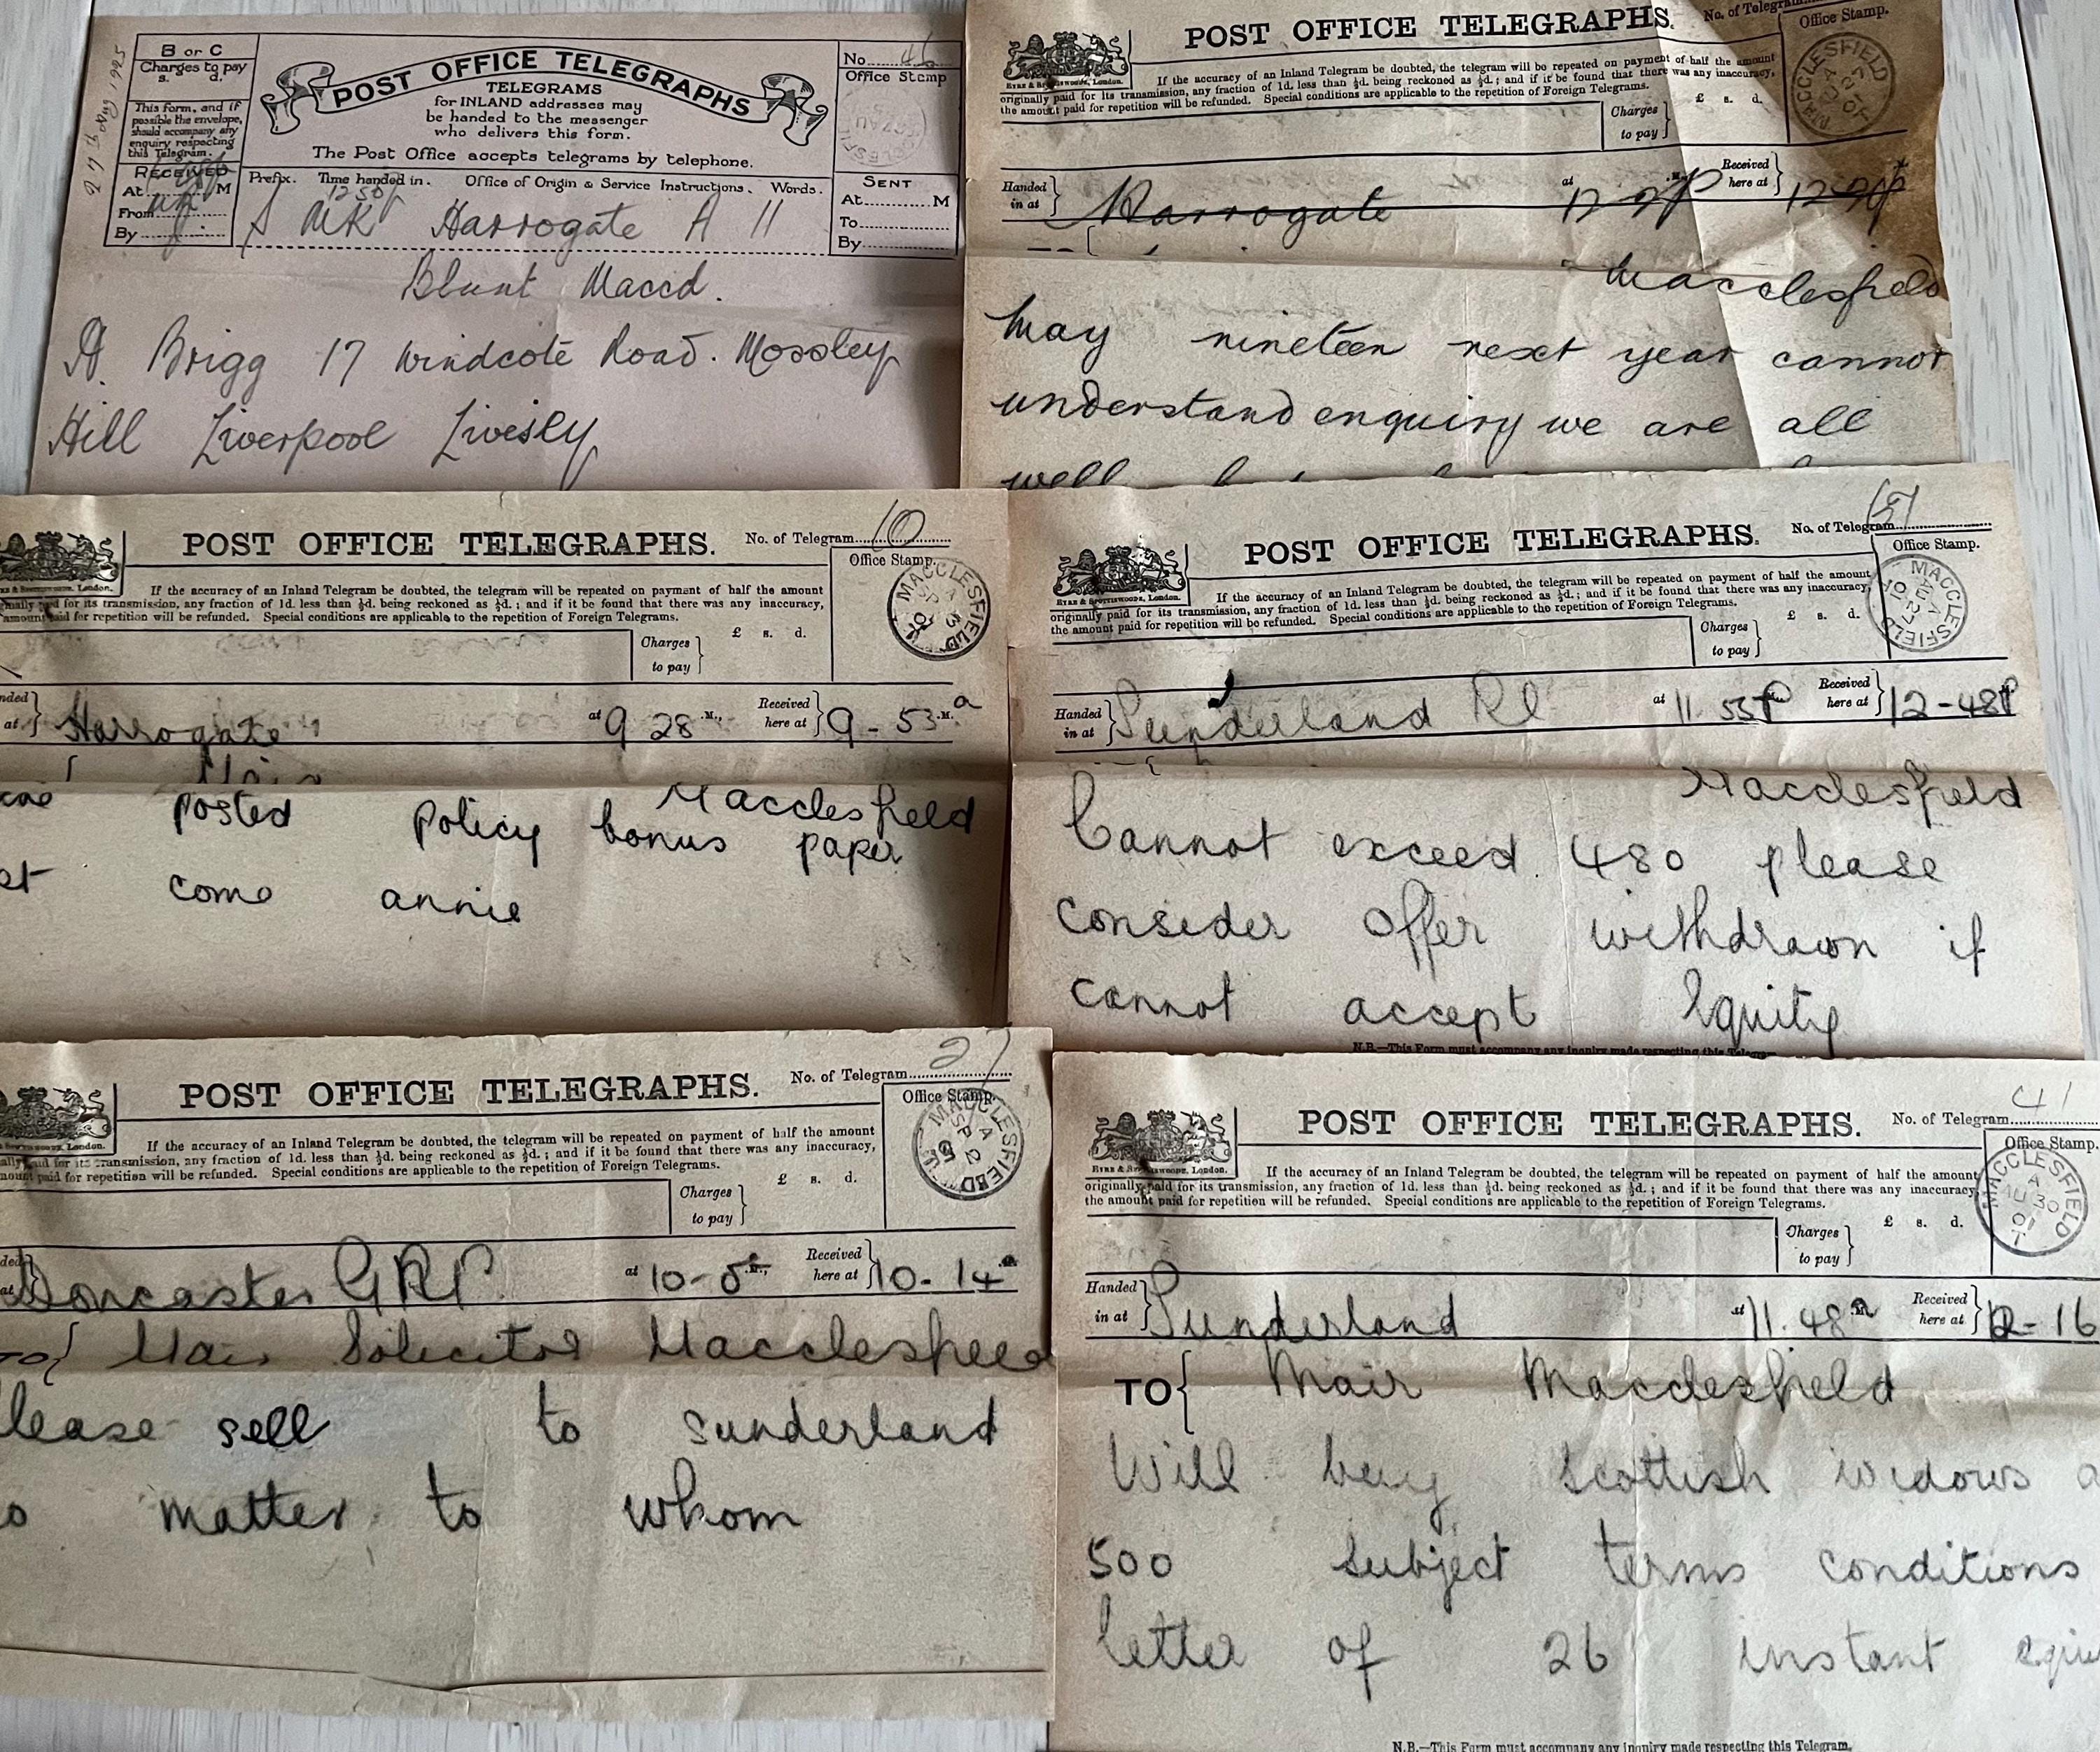 27th Aug 1925
B or C
Charges to pay
s. d.
This form, and if
possible the envelope,
should accompany any
enquiry respecting
this Telegram.
RECEIVED
At M
From
By
POST OFFICE TELEGRAPHS
TELEGRAMS
for INLAND addresses may
be handed to the messenger
who delivers this form.
The Post Office accepts telegrams by telephone.
Prefix. Time handed in. Office of Origin & Service Instructions. Words.
No. 46
Office Stamp
SENT
At M
To
By
1250p
Harrogate A 11
Blunt Maccd.
A. Brigg 17 Windcote Road. Mossley
Hill Liverpool Livesly
POST OFFICE TELEGRAPHS.
No. of Telegram
Office Stamp.
MACCLESFIELD
EYRE & SPOTTISWOODE, London.
If the accuracy of an Inland Telegram be doubted, the telegram will be repeated on payment of half the amount
originally paid for its transmission, any fraction of 1d. less than ½d. being reckoned as ½d.; and if it be found that there was any inaccuracy,
the amount paid for repetition will be refunded. Special conditions are applicable to the repetition of Foreign Telegrams.
£ s. d.
Charges
to pay
Handed
in at
Harrogate
at
Received
here at
Macclesfield
May nineteen next year cannot
understand enquiry we are all
well
POST OFFICE TELEGRAPHS.
No. of Telegram 10
Office Stamp.
MACCLESFIELD
If the accuracy of an Inland Telegram be doubted, the telegram will be repeated on payment of half the amount
paid for its transmission, any fraction of 1d. less than ½d. being reckoned as ½d.; and if it be found that there was any inaccuracy,
amount paid for repetition will be refunded. Special conditions are applicable to the repetition of Foreign Telegrams.
£ s. d.
Charges
to pay
Harrogate
at 9 28 M.,
Received
here at 9-53 a
Mair
Macclesfield
posted policy bonus paper
come annie
POST OFFICE TELEGRAPHS.
No. of Telegram 57
Office Stamp.
MACCLESFIELD
A
AU 27
01
EYRE & SPOTTISWOODE, London.
If the accuracy of an Inland Telegram be doubted, the telegram will be repeated on payment of half the amount
originally paid for its transmission, any fraction of 1d. less than ½d. being reckoned as ½d.; and if it be found that there was any inaccuracy,
the amount paid for repetition will be refunded. Special conditions are applicable to the repetition of Foreign Telegrams.
£ s. d.
Charges
to pay
Handed
in at
Sunderland
at 11 55
Received
here at 12-48p
Macclesfield
Cannot exceed 480 please
consider offer withdrawn if
cannot accept Equity
N.B.—This Form must accompany any inquiry made respecting this Telegram.
POST OFFICE TELEGRAPHS.
No. of Telegram 21
Office Stamp.
MACCLESFIELD
A
SP 2
If the accuracy of an Inland Telegram be doubted, the telegram will be repeated on payment of half the amount
paid for its transmission, any fraction of 1d. less than ½d. being reckoned as ½d.; and if it be found that there was any inaccuracy,
amount paid for repetition will be refunded. Special conditions are applicable to the repetition of Foreign Telegrams.
£ s. d.
Charges
to pay
Doncaster
at 10-5
Received
here at 10-14
Mair Solicitor Macclesfield
lease sell to sunderland
o matter to whom
POST OFFICE TELEGRAPHS.
No. of Telegram 41
Office Stamp.
MACCLESFIELD
A
AU 30
01
EYRE & SPOTTISWOODE, London.
If the accuracy of an Inland Telegram be doubted, the telegram will be repeated on payment of half the amount
originally paid for its transmission, any fraction of 1d. less than ½d. being reckoned as ½d.; and if it be found that there was any inaccuracy,
the amount paid for repetition will be refunded. Special conditions are applicable to the repetition of Foreign Telegrams.
£ s. d.
Charges
to pay
Handed
in at
Sunderland
at 11.48a
Received
here at 12-16
TO Mair Macclesfield
Will buy scottish widows
500 subject terms conditions
letter of 26 instant
N.B.—This Form must accompany any inquiry made respecting this Telegram.